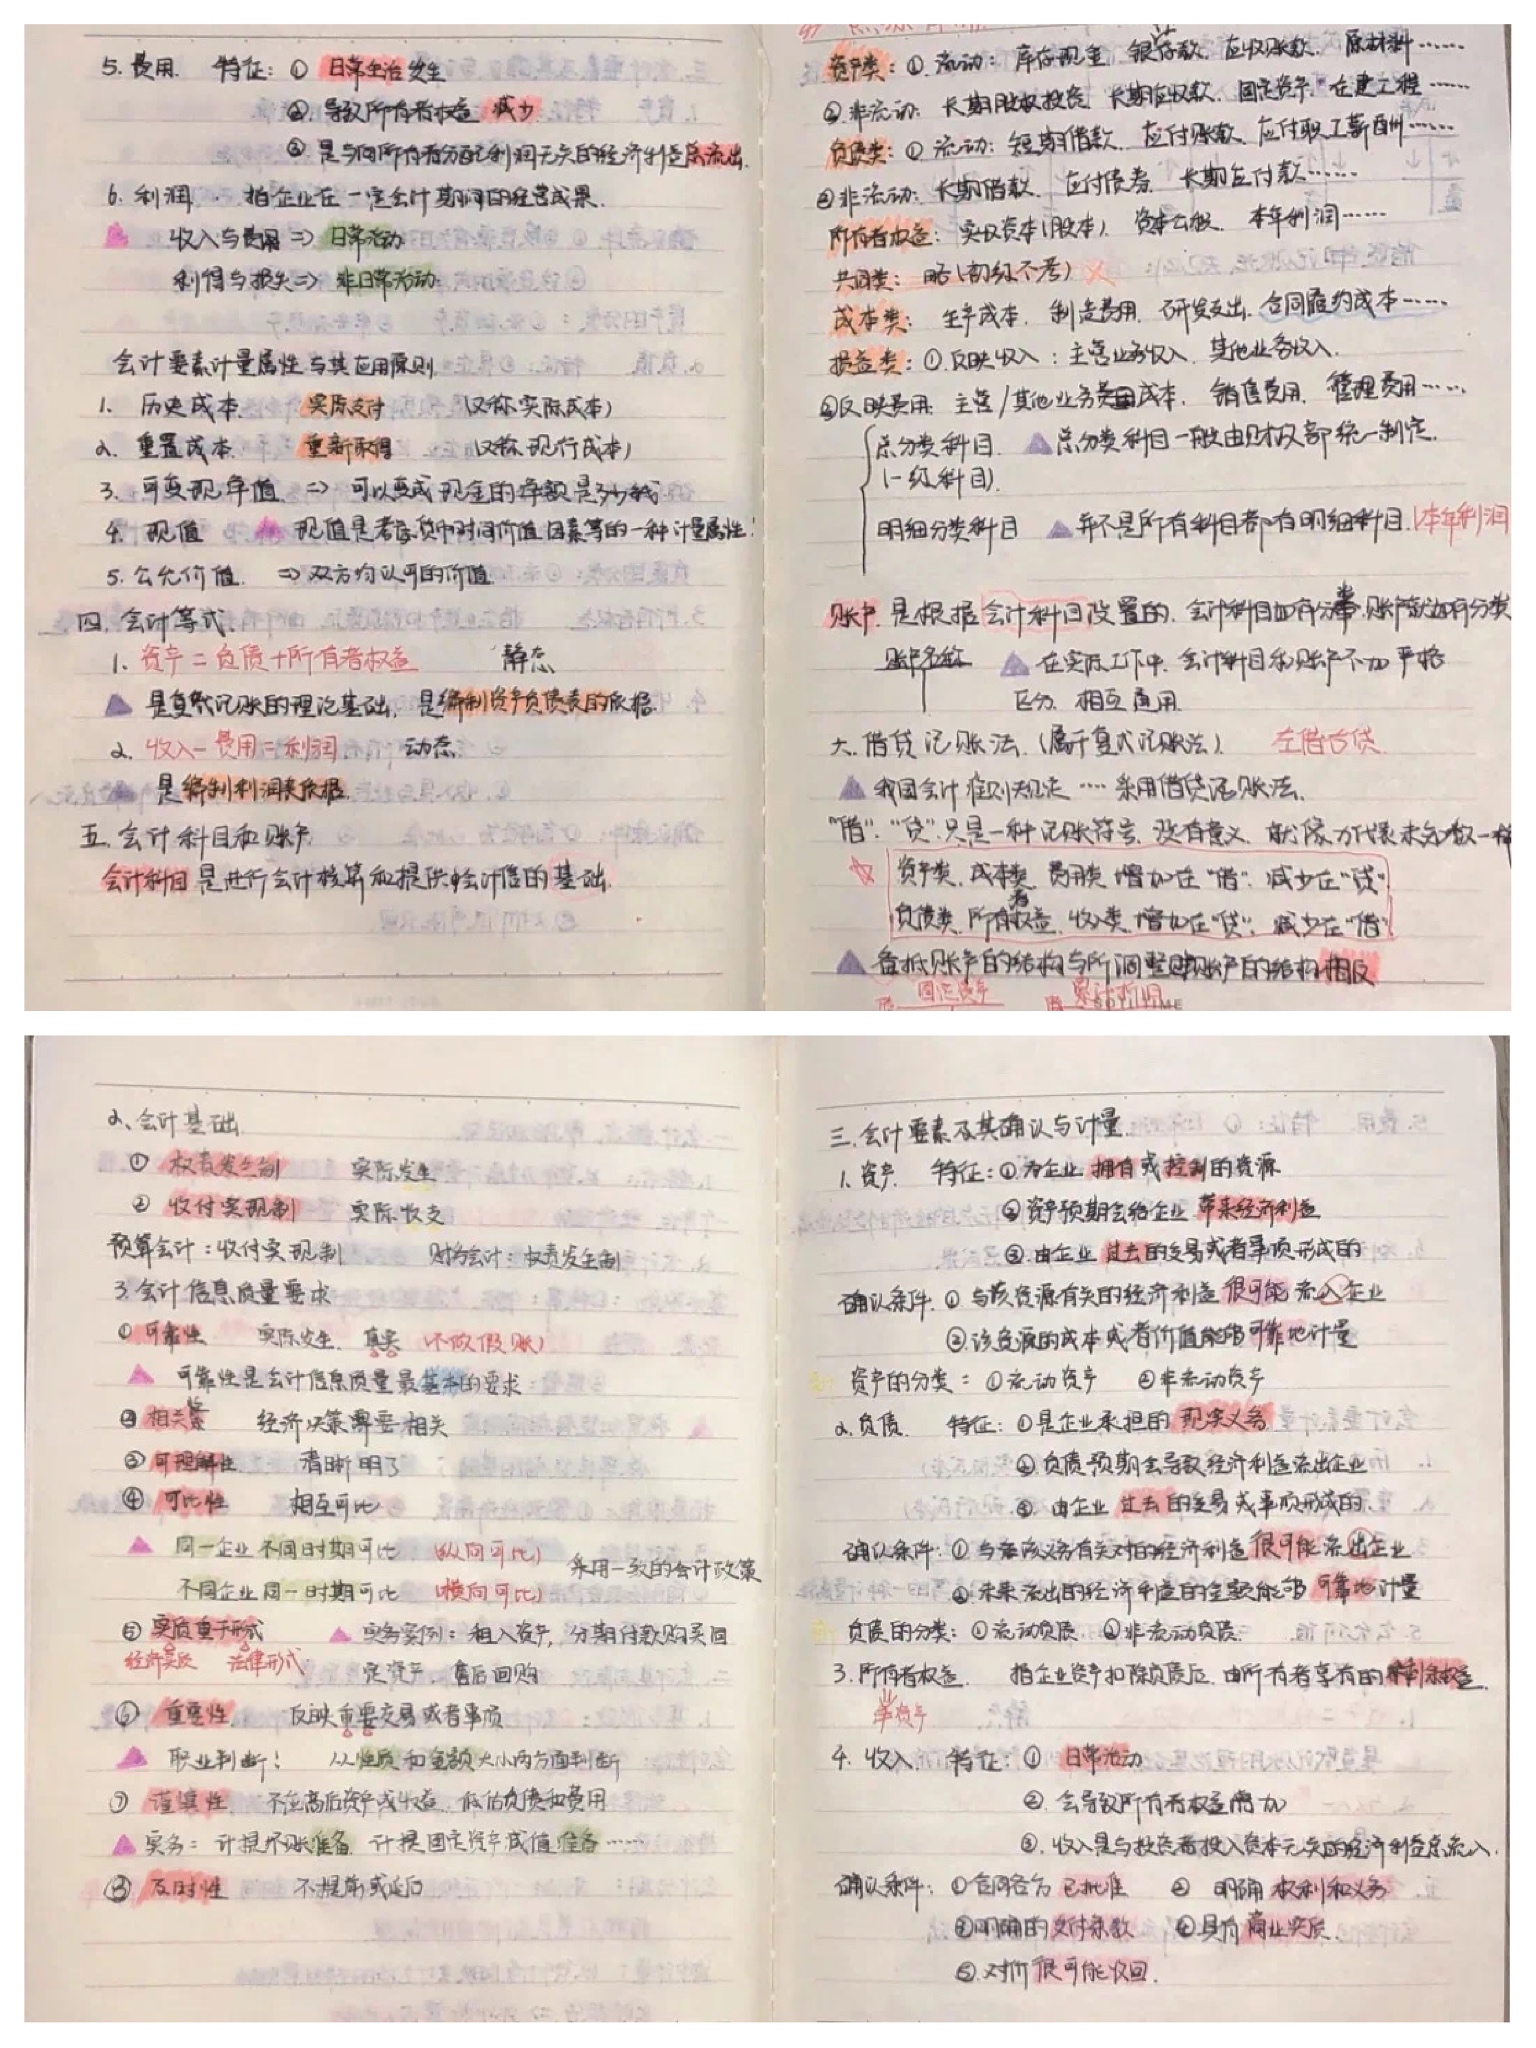 5. 费用. 特征: ① 日常生活发生
②. 导致所有者权益 减少.
③ 是与向所有者分配利润无关的经济利益总流出.
6. 利润. 指企业在一定会计期间的经营成果.
收入与费用 => 日常活动
利得与损失=> 非日常活动.
会计要素计量属性与其应用原则
1. 历史成本 实际支付 (又称实际成本)
2. 重置成本 重新取得 (又称现行成本)
3. 可变现净值 => 可以变成现金的净额是多少钱
4. 现值 现值是考虑货币时间价值因素等的一种计量属性!
5. 公允价值. => 双方均认可的价值
四. 会计等式.
1. 资产=负债+所有者权益 静态
是复式记账的理论基础, 是编制资产负债表的依据.
2. 收入-费用=利润 动态
是编制利润表依据.
五. 会计科目和账户
会计科目是进行会计核算和提供会计信的基础.
资产类: ①. 流动: 库存现金 银存款. 应收账款. 原材料……
②.非流动: 长期股权投资 长期应收款. 固定资产. 在建工程……
负债类: ① 流动: 短期借款. 应付账款、应付职工薪酬……
②非流动: 长期借款. 应付债券. 长期应付款……
所有者权益: 实收资本(股本). 资本公积. 本年利润……
共同类: 略(初级不考) ×
成本类: 生产成本. 制造费用. 研发支出. 合同履约成本……
损益类: ①.反映收入: 主营业务收入. 其他业务收入.
②反映费用: 主营/其他业务成本. 销售费用. 管理费用……
总分类科目. 总分类科目一般由财政部统一制定.
(一级科目).
明细分类科目 并不是所有科目都有明细科目.(本年利润
账户 是根据会计科目设置的. 会计科目如有分类.账户就如有分类
账户名称 在实际工作中. 会计科目和账户不加严格
区分. 相互通用.
六. 借贷记账法. (属于复式记账法). 左借右贷.
我国会计准则规定 …… 采用借贷记账法.
"借". "贷".只是一种记账符号. 没有意义. 就像 为代表未知数一样
☆ 资产类. 成本类. 费用类 增加在"借". 减少在"贷"
负债类. 所有者权益. 收入类. 增加在"贷". 减少在"借"
备抵账户的结构与所调整账户的结构相反
固定资产 累计折旧
2、会计基础
① 权责发生制 实际发生
② 收付实现制 实际收支
预算会计: 收付实现制 财务会计: 权责发生制
3. 会计信息质量要求
① 可靠性 实际发生 真实 (不做假账)
可靠性是会计信息质量最基本的要求:
② 相关 经济决策需要相关
③ 可理解性. 清晰明了
④ 可比性 相互可比
同一企业 不同时期可比 (纵向可比)
采用一致的会计政策
不同企业同一时期可比 (横向可比)
⑤ 实质重于形式 实务案例: 租入资产, 分期付款购买固
经济实质 法律形式
定资产. 售后回购
⑥ 重要性 反映重要交易或者事项
职业判断! 从性质和金额大小两方面判断
⑦ 谨慎性. 不应高估资产或收益. 低估负债和费用
实务: 计提坏账准备. 计提固定资产减值准备……
⑧ 及时性 不提前或延后
三. 会计要素及其确认与计量
1. 资产. 特征: ①为企业 拥有或控制的资源
②资产预期会给企业 带来经济利益
③.由企业 过去的交易或者事项形成的
确认条件. ① 与该资源有关的经济利益 很可能流入企业
②.该资源的成本或者价值能够可靠地计量
资产的分类: ①流动资产 ②非流动资产
2.负债. 特征: ①是企业承担的 现实义务
②. 负债预期会导致经济利益流出企业
③. 由企业 过去的交易或事项形成的.
确认条件: ① 与该义务有关的经济利益 很可能流出企业
②.未来流出的经济利益的金额能够可靠地计量
负债的分类: ①流动负债 ②非流动负债.
3.所有者权益. 指企业资产扣除负债后. 由所有者享有的剩余权益.
净资产
4. 收入. 特征: ① 日常活动
②. 会导致所有者权益增加
③. 收入是与投资者投入资本无关的经济利益总流入.
确认条件: ①合同各方 已批准 ② 明确 权利和义务
③明确的支付条款 ④具有商业实质.
⑤.对价 很可能收回.